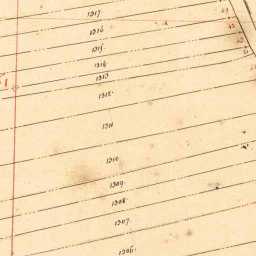 1317.
1316
1315.
1314
1313
1312.
1311
1310
1309.
1308.
1307.
1306.